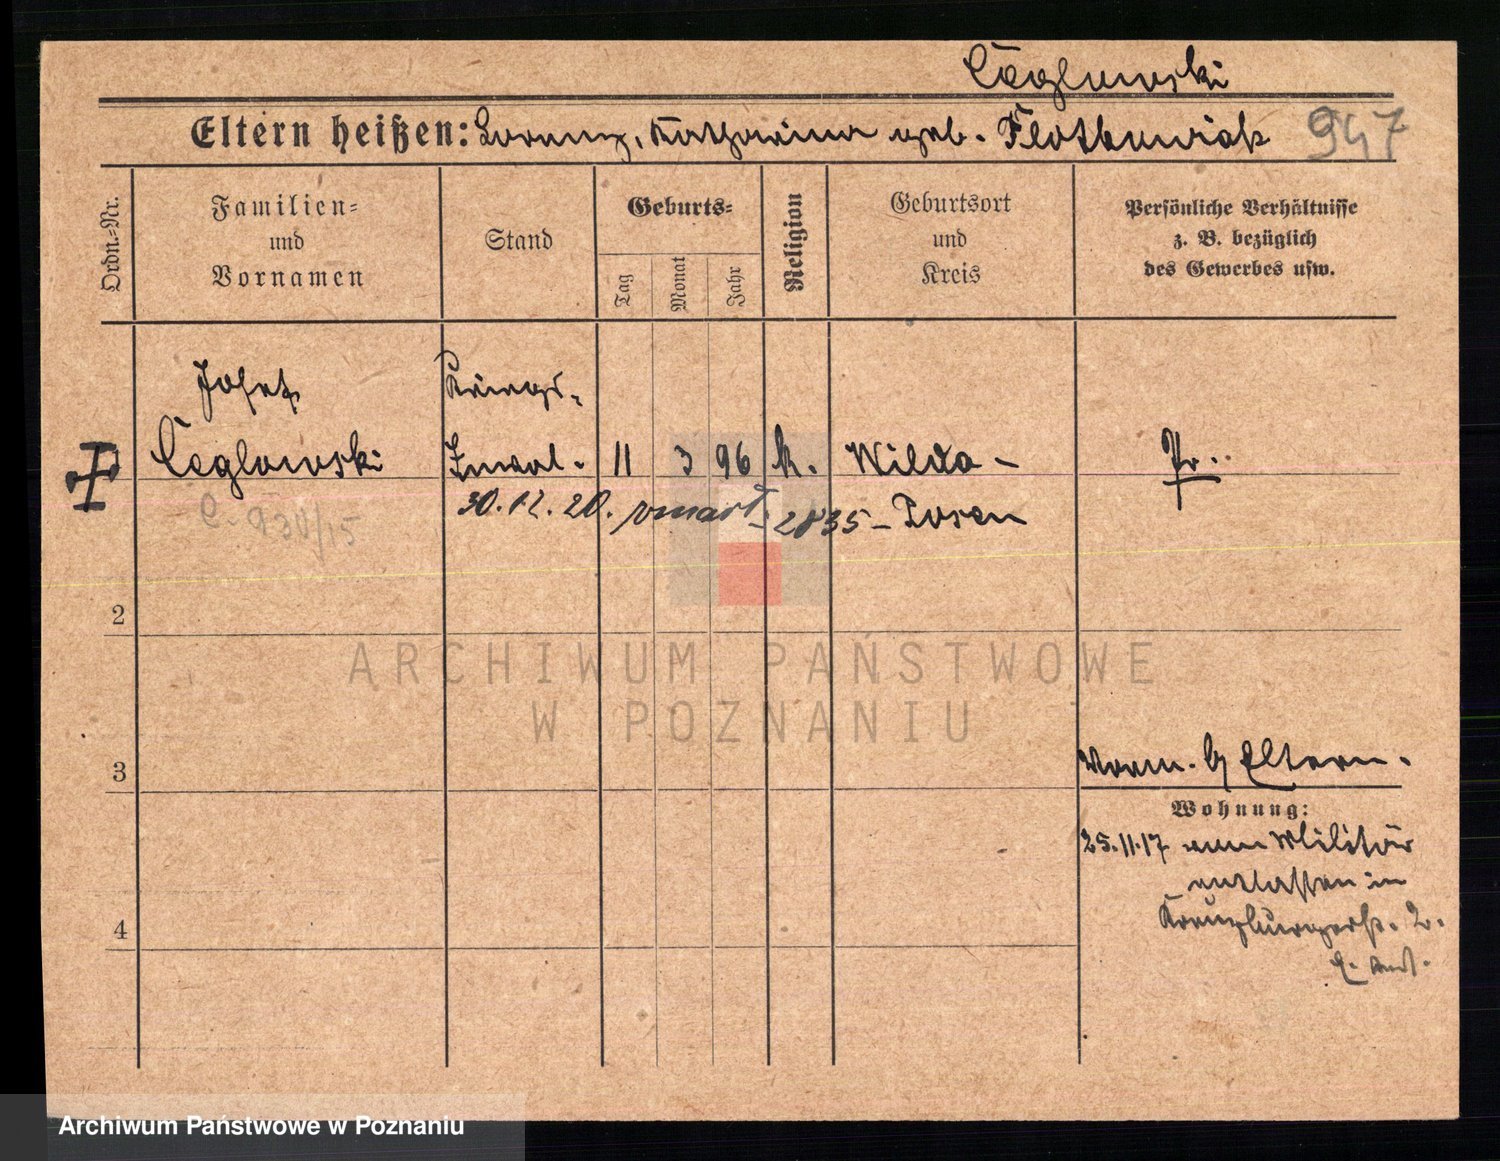 Ceglowski
Eltern heißen: Lorenz, Katharina geb. Flotkowiak 947
Ordn.-Nr.
Familien-
und
Vornamen
Stand
Geburts-
Tag
Monat
Jahr
Religion
Geburtsort
und
Kreis
Persönliche Verhältnisse
z. B. bezüglich
des Gewerbes usw.
Josef Kriegs-
Ceglowski Inval. 11 3 96 k. Wilda- Pr.
30.12.20. 2835 - Posen
2
ARCHIWUM PAŃSTWOWE
W POZNANIU
3
Eltern.
Wohnung:
25.11.17 vom Militär
entlassen in
Kreuzburgerstr. 2.
4
Archiwum Państwowe w Poznaniu